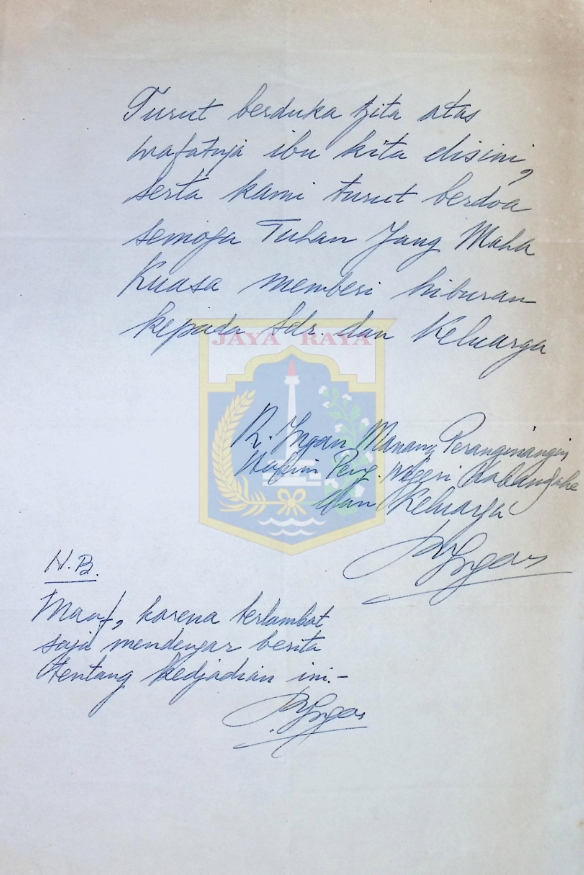 Turut berduka tjita atas
wafatnja ibu kita disini,
serta kami turut berdoa
semoga Tuhan Jang Maha
Kuasa memberi hiburan
kepada Sdr. dan Keluarga
JAYA RAYA
R. Ingan Manang Peranginangin
Hakim Peng. Negeri Kabandjahe
dan Keluarga
N.B.
Maaf, karena terlambat
saja mendengar berita
tentang kedjadian ini.-